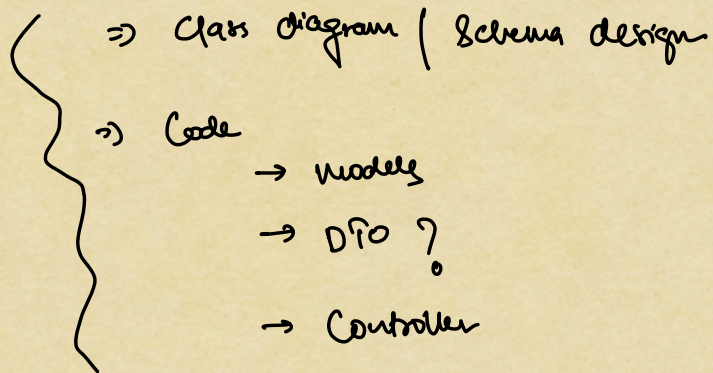 ⇒ Class diagram | Schema design
⇒ Code
→ models
→ DTO ?
→ Controller